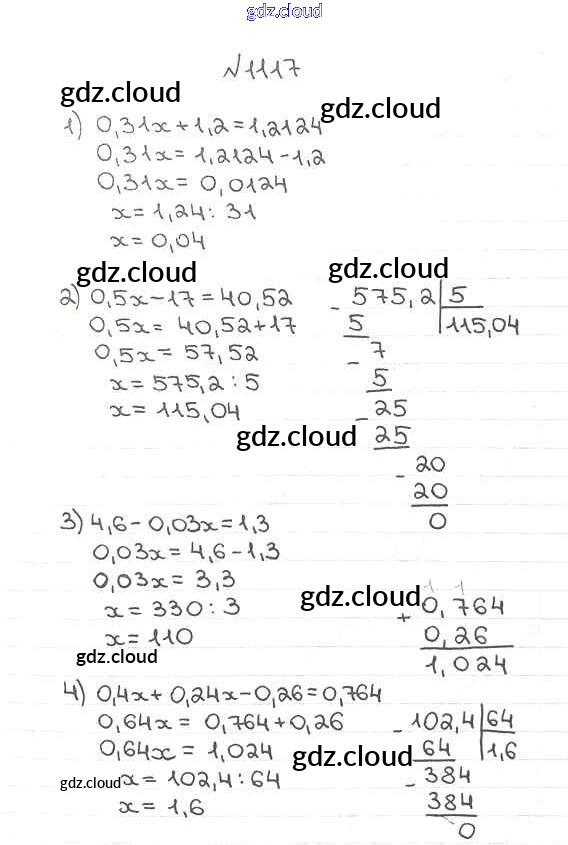 gdz.cloud
№1117
gdz.cloud
gdz.cloud
1) 0,31x+1,2=1,2124
0,31x=1,2124-1,2
0,31x=0,0124
x=1,24:31
x=0,04
gdz.cloud
gdz.cloud
2) 0,5x-17=40,52
0,5x=40,52+17
0,5x=57,52
x=575,2:5
x=115,04
- 575,2 | 5
5 | 115,04
- 7
5
- 25
25
- 20
20
0
gdz.cloud
3) 4,6-0,03x=1,3
0,03x=4,6-1,3
0,03x=3,3
x=330:3
x=110
gdz.cloud
gdz.cloud
1 1
+ 0,764
0,26
1,024
4) 0,4x+0,24x-0,26=0,764
0,64x=0,764+0,26
0,64x=1,024
gdz.cloud
gdz.cloud
x=102,4:64
x=1,6
- 102,4 | 64
64 | 1,6
- 384
384
0